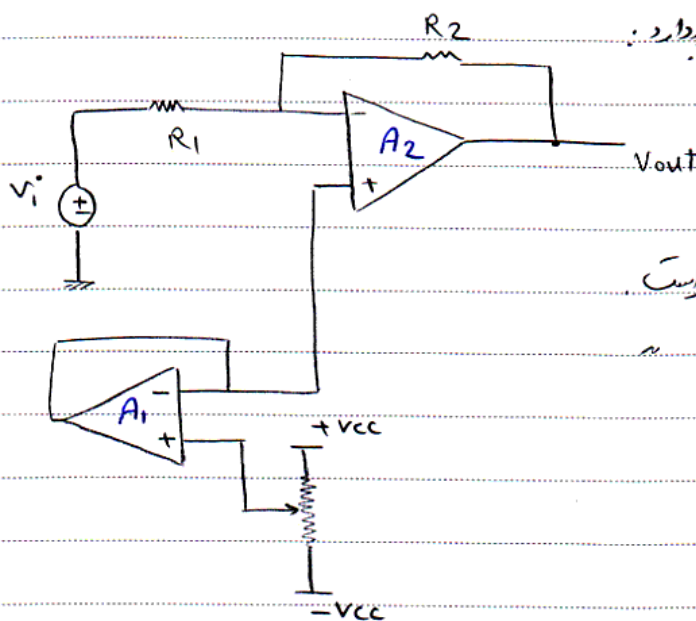 R2
دارد.
R1
-
A2
+
Vout
Vi
+
-
A1
-
+
+Vcc
-Vcc